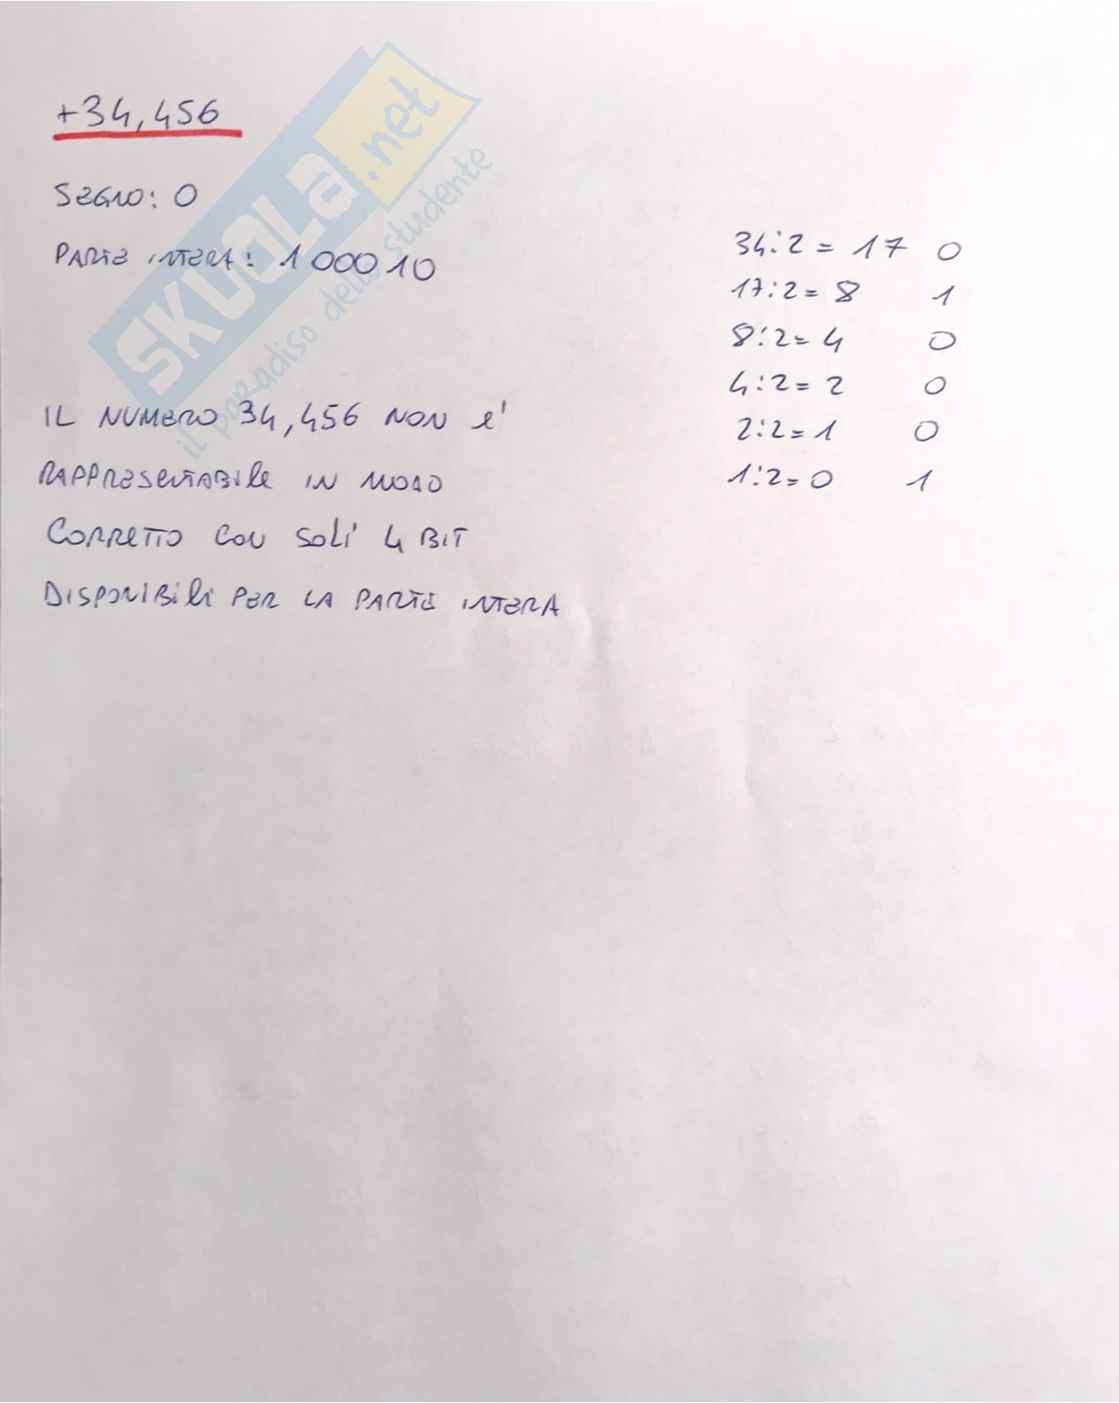 +34,456
SEGNO: 0
PARTE INTERA: 100010
34:2 = 17 0
17:2 = 8 1
8:2 = 4 0
4:2 = 2 0
2:2 = 1 0
1:2 = 0 1
IL NUMERO 34,456 NON E'
RAPPRESENTABILE IN MODO
CORRETTO CON SOLI 4 BIT
DISPONIBILI PER LA PARTE INTERA
SKUOLA.net
il paradiso dello studente